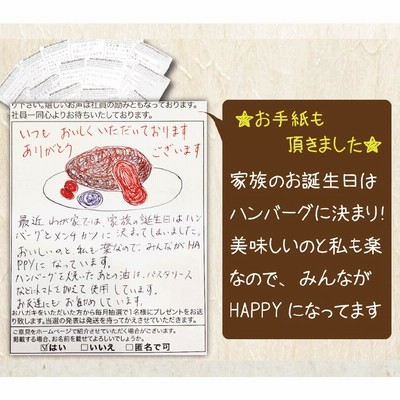 り下さい。嬉しいお声は社員の励みともなっております。
社員一同心よりお待ちいたしております。
いつも おいしく いただいております
ありがとう ございます
最近 わが家では、家族の誕生日はハン
バーグとメンチカツに 決まってしまいました。
おいしいのと 私も楽なので、みんながHA
PPYに なっています。
ハンバーグを焼いたあとの油は、パスタソース
などにトマトを加えて 使用 しています。
お友達にも お勧めしています。
おハガキをいただいた方から毎月抽選で1名様にプレゼントをお送
り致します。当選の発表は発送を持ってかえさせていただきます。
ご意見をホームページで紹介させていただく場合がございます。
掲載する場合、お名前を載せてよろしいでしょうか。
☑はい □いいえ □匿名で可
★お手紙も
頂きました★
家族のお誕生日は
ハンバーグに決まり!
美味しいのと私も楽
なので、みんなが
HAPPYになってます